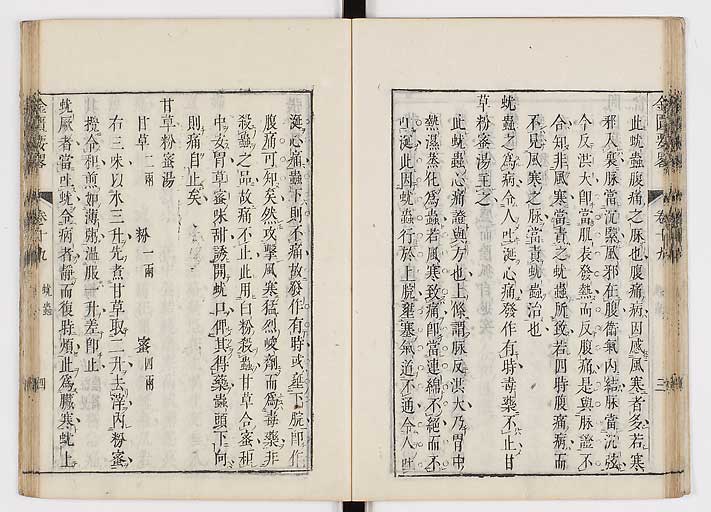 金匱要畧
卷十九
三
此蚘蟲腹痛之脉也腹痛病因感風寒者多若寒
邪入裏脉當沉緊風邪在腹衞氣內結脉當沉弦
今反洪大卽當肌表發熱而反腹痛是與脉證不
合知非風寒當責之蚘蟲所致若四時腹痛病而
不見風寒之脉當責蚘蟲治也
蚘蟲之爲病令人吐涎心痛發作有時毒藥不止甘
草粉蜜湯主之
此蚘蟲心痛證與方也上條謂脉反洪大乃胃中
熱濕蒸化爲蟲若風寒致痛卽當連綿不絕而不
吐涎此因蚘蟲行於上脘壅塞氣道不通令人吐
涎心痛蟲下則不痛故發作有時或在下脘卽作
腹痛可知矣然攻擊風寒猛烈峻劑而爲毒藥非
殺蟲之品故痛不止此用白粉殺蟲甘草合蜜和
中安胃草蜜味甜誘開蚘口俾其得藥蟲頭下向
則痛自止矣
甘草粉蜜湯
甘草二兩 粉一兩 蜜四兩
右三味以水三升先煮甘草取二升去滓內粉蜜
攪令和煎如薄粥溫服一升差卽止
蚘厥者當吐蚘令病者靜而復時煩此爲臟寒蚘上
金匱要畧
卷十九
蚘蟲
四